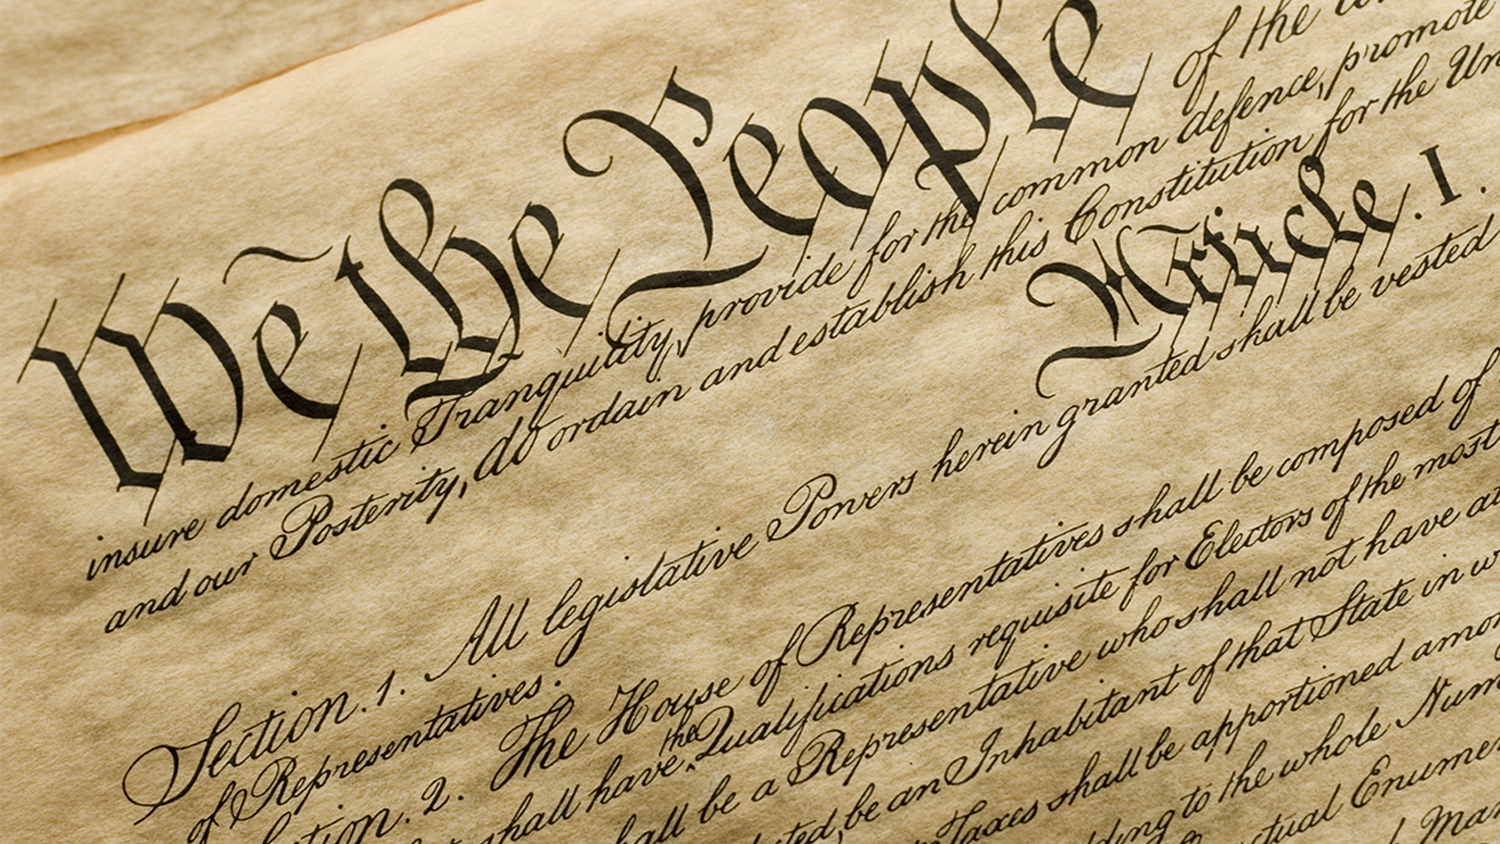 We the People of the
insure domestic Tranquility, provide for the common defence, promote
and our Posterity, do ordain and establish this Constitution for the Un
Article. I.
Section. 1. All legislative Powers herein granted shall be vested
of Representatives.
ction. 2. The House of Representatives shall be composed of
shall have the Qualifications requisite for Electors of the most
all be a Representative who shall not have at
cted, be an Inhabitant of that State in w
Taxes shall be apportioned amon
ding to the whole Num
ctual Enumer
Man